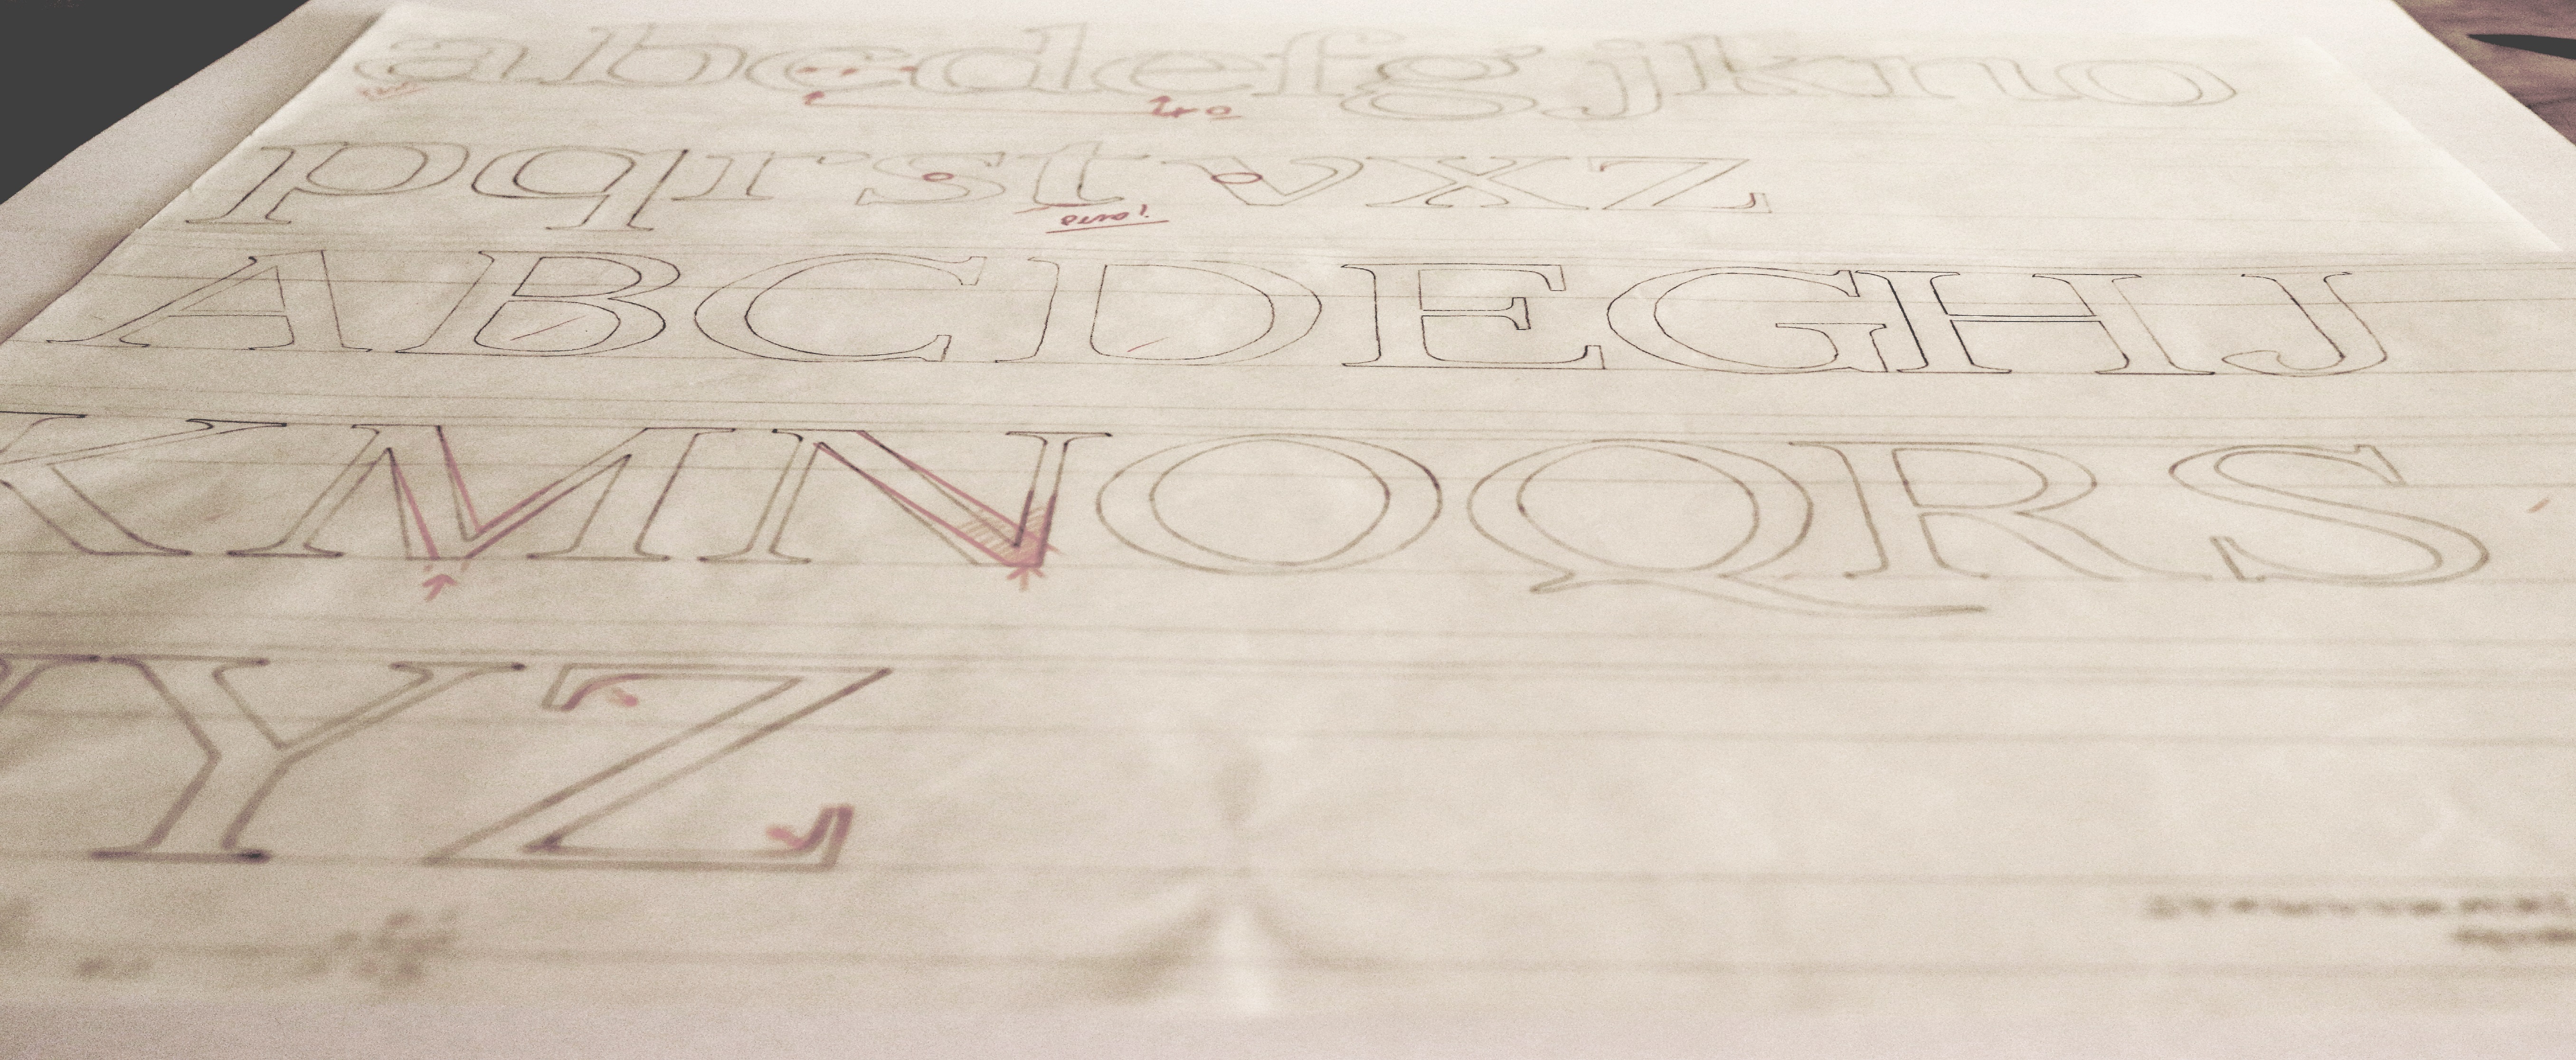 abcdefgjkno
pqrstvxz
ABCDEGHJ
KMNOQRS
YZ